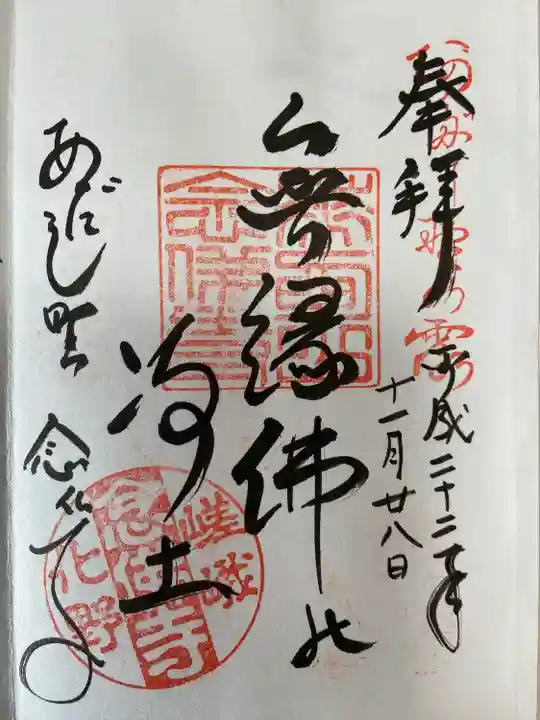 奉拝
平成二十二年
十一月廿八日
無縁佛の
浄土
あだし野 念仏寺
嵯峨
念佛寺
化野